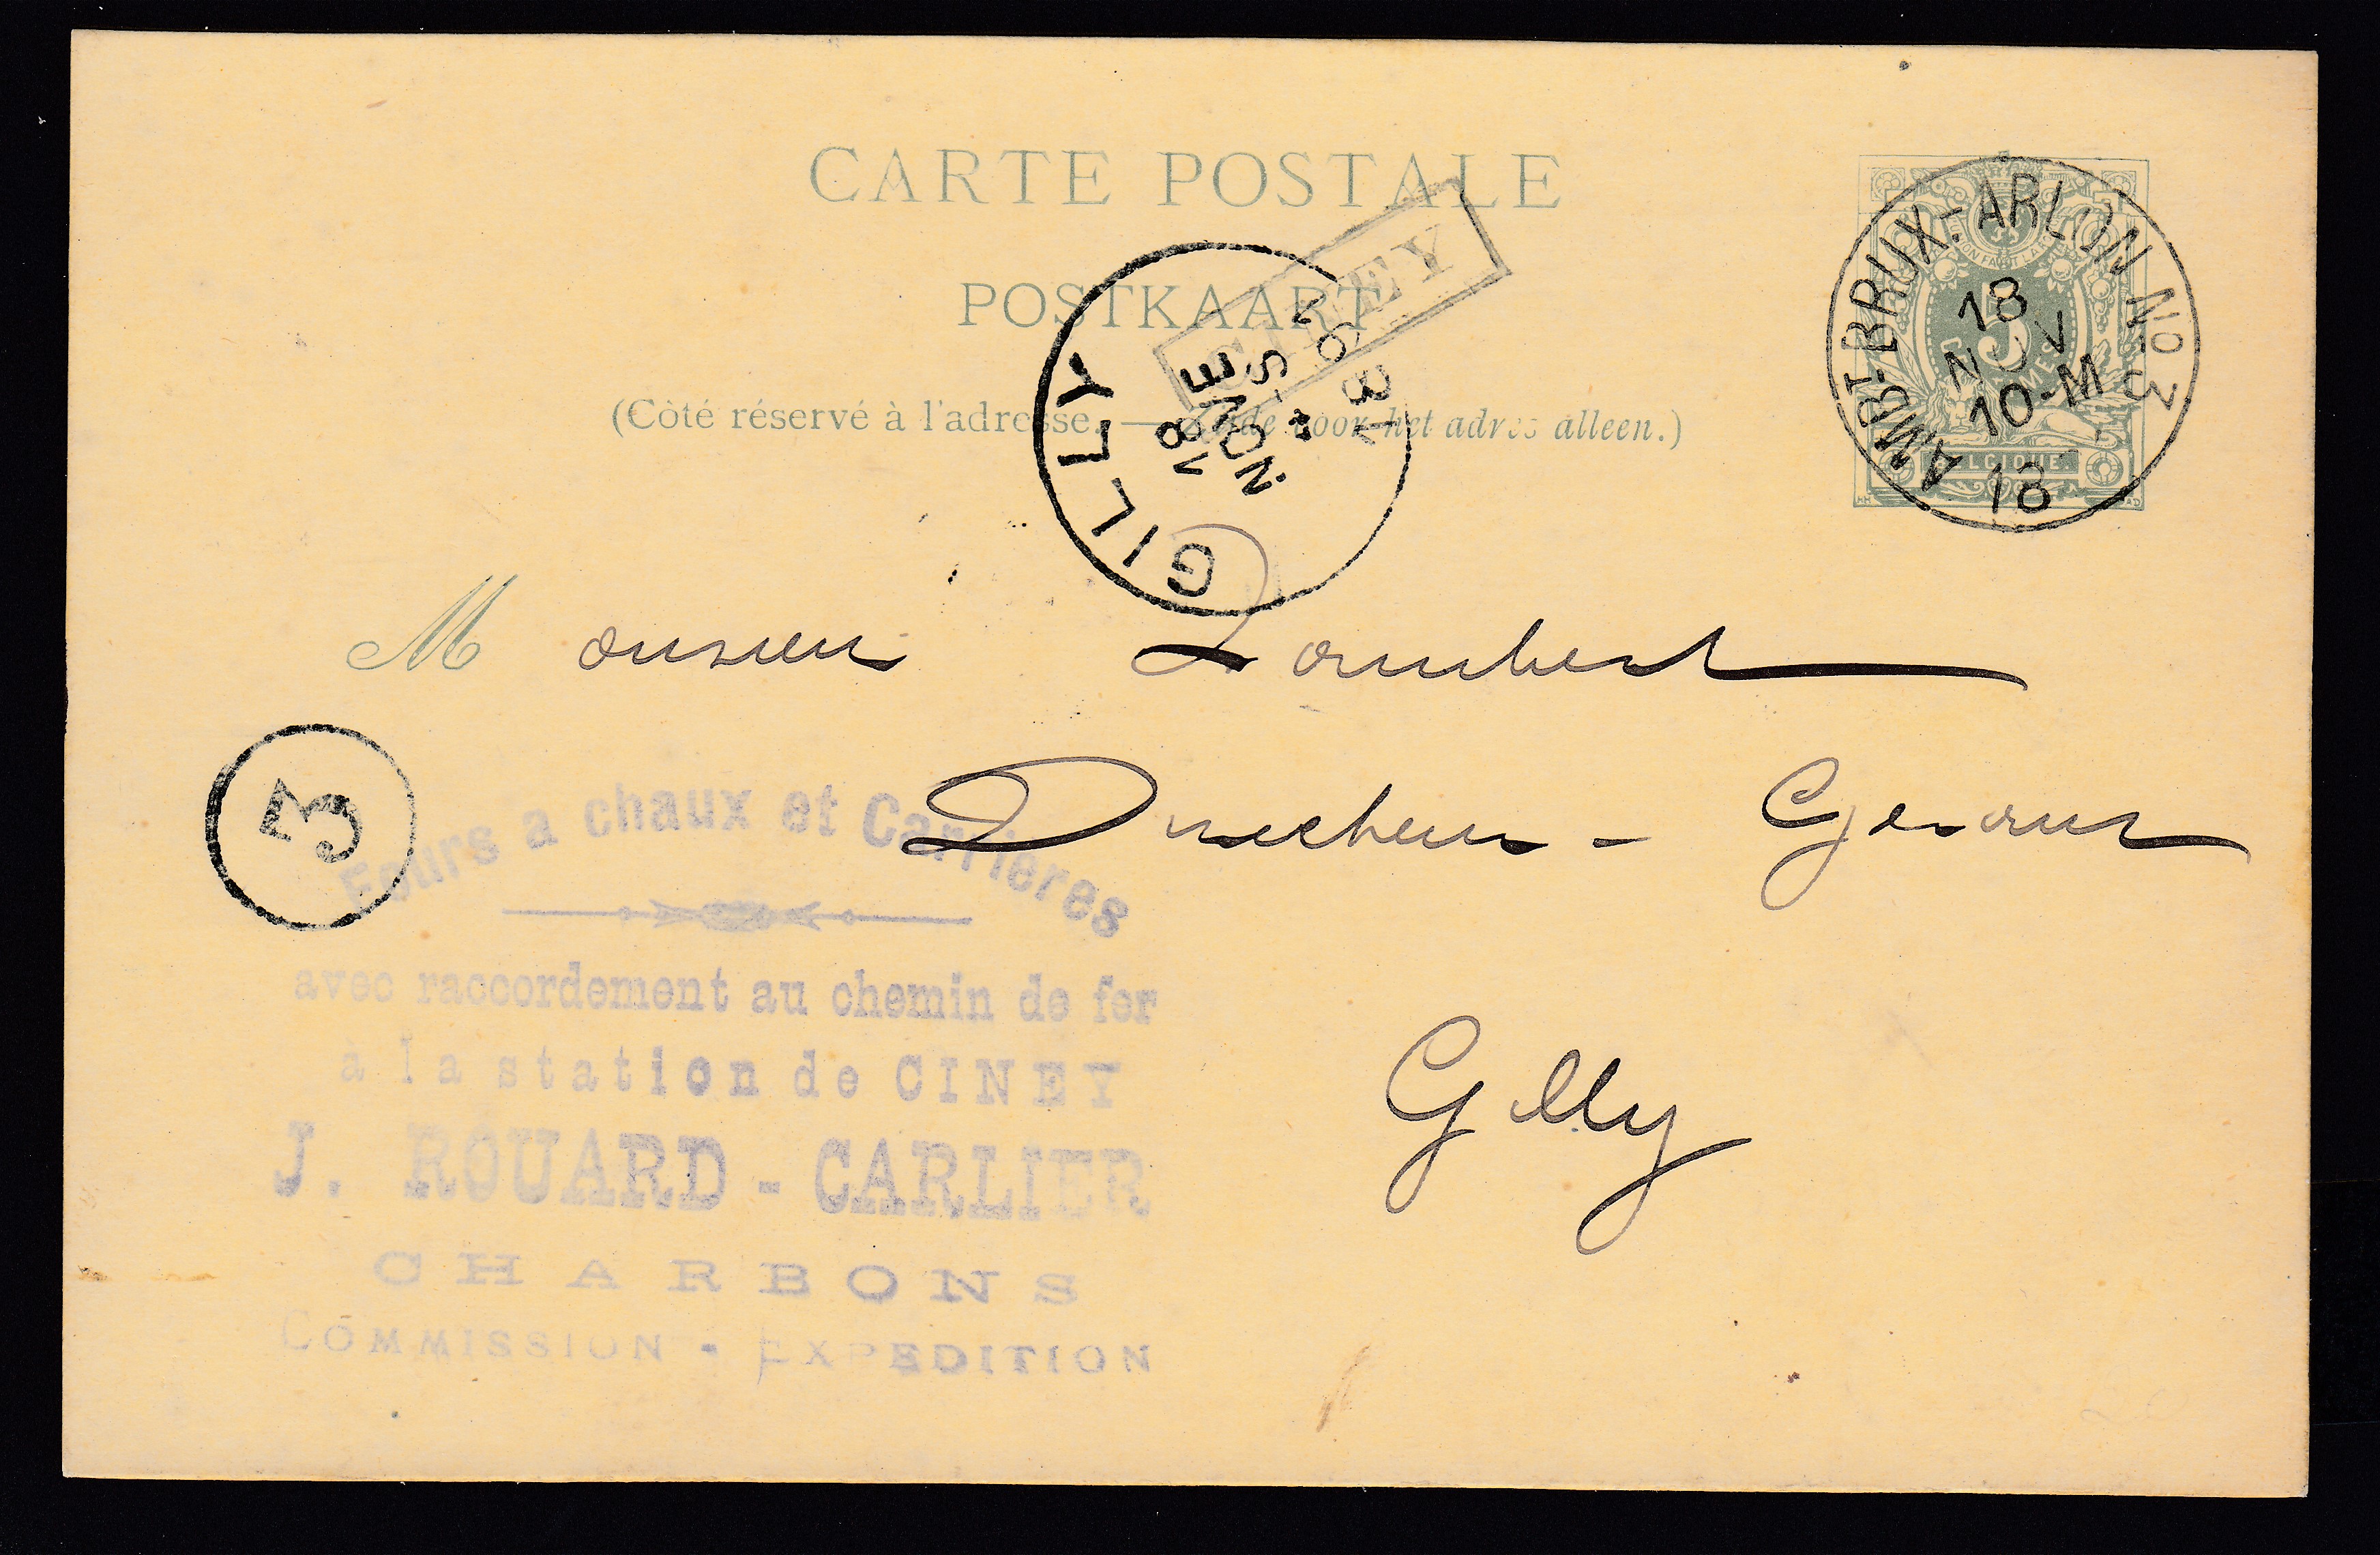 CARTE POSTALE
POSTKAART
(Côté réservé à l'adresse. — Zijde voor het adres alleen.)
CINEY
GILLY
18 NOV
5-S
1891
AMBT-BRUX.-ARLON No 3
18
NOV
10-M
18
5
BELGIQUE.
Monsieur Lambert
Directeur - Gérant
Gilly
3
Fours a chaux et Carrières
avec raccordement au chemin de fer
à la station de CINEY
J. ROUARD - CARLIER
CHARBONS
COMMISSION - EXPEDITION